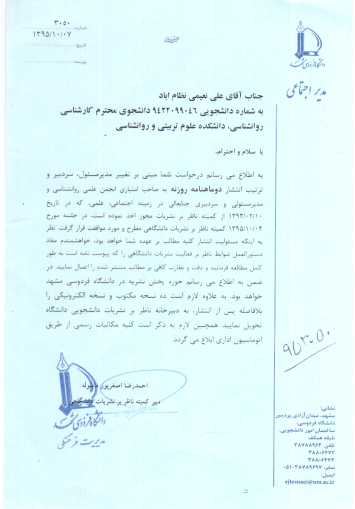 شماره ۳۰۵۰
تاریخ ۱۳۹۵/۱۰/۰۷
دانشگاه فردوسی مشهد
مدیر اجتماعی
جناب آقای علی نعیمی نظام اباد
به شماره دانشجویی ۹۴۲۲۰۹۹۰۴۶ دانشجوی محترم کارشناسی
روانشناسی، دانشکده علوم تربیتی و روانشناسی
با سلام و احترام،
به اطلاع می رساند درخواست شما مبنی بر تغییر مدیرمسئول، سردبیر و
ترتیب انتشار دوماهنامه روزنه به صاحب امتیازی انجمن علمی روانشناسی و
مدیرمسئولی و سردبیری جنابعالی در زمینه اجتماعی علمی، که در تاریخ
۱۳۹۳/۰۲/۱۰ از کمیته ناظر بر نشریات مجوز اخذ نموده است، در جلسه مورخ
۱۳۹۵/۱۰/۰۴ کمیته ناظر بر نشریات دانشگاهی مطرح و مورد موافقت قرار گرفت. نظر
به اینکه مسئولیت انتشار کلیه مطالب بر عهده شما خواهد بود، خواهشمندم مفاد
دستورالعمل ضوابط ناظر بر فعالیت نشریات دانشگاهی را که پیوست نامه است به طور
کامل مطالعه فرمایید و دقت و نظارت کافی بر مطالب منتشر شده را اعمال نمایید. در
ضمن به اطلاع می رساند حوزه پخش نشریه در دانشگاه فردوسی مشهد
خواهد بود. به علاوه لازم است ده نسخه مکتوب و نسخه الکترونیکی را
بلافاصله پس از انتشار، به دبیرخانه ناظر بر نشریات دانشجویی دانشگاه
تحویل نمایید. همچنین لازم به ذکر است کلیه مکاتبات رسمی از طریق
اتوماسیون اداری ابلاغ می گردد.
احمدرضا اصغرپور
دبیر کمیته ناظر بر نشریات دانشگاهی
دانشگاه فردوسی مشهد
مدیریت فرهنگی
نشانی:
مشهد، میدان آزادی، پردیس
دانشگاه فردوسی،
ساختمان امور دانشجویی،
طبقه همکف
تلفن: ۳۸۷۸۸۹۶۲
۳۸۸۰۶۴۷۲
۳۸۸۰۶۴۷۳
نمابر: ۳۸۷۸۹۶۹۷-۰۵۱
ایمیل:
ejtemaei@um.ac.ir